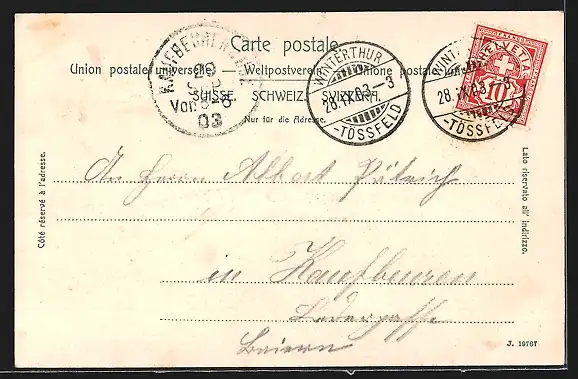 Carte postale.
Union postale universelle. — Weltpostverein. — Unione postale
SUISSE. SCHWEIZ. SVIZZERA.
Nur für die Adresse.
KAUFBEUREN
29
SEP
Vor
03
WINTERTHUR
28.IX.03.-8
-TÖSSFELD
WINTERTHUR
28.IX.03.-8
-TÖSSFELD
HELVETIA
10
Côté réservé à l'adresse.
Lato riservato all' indirizzo.
An Herrn Albert
in Kaufbeuren
Ledergasse
Baiern
J. 19767